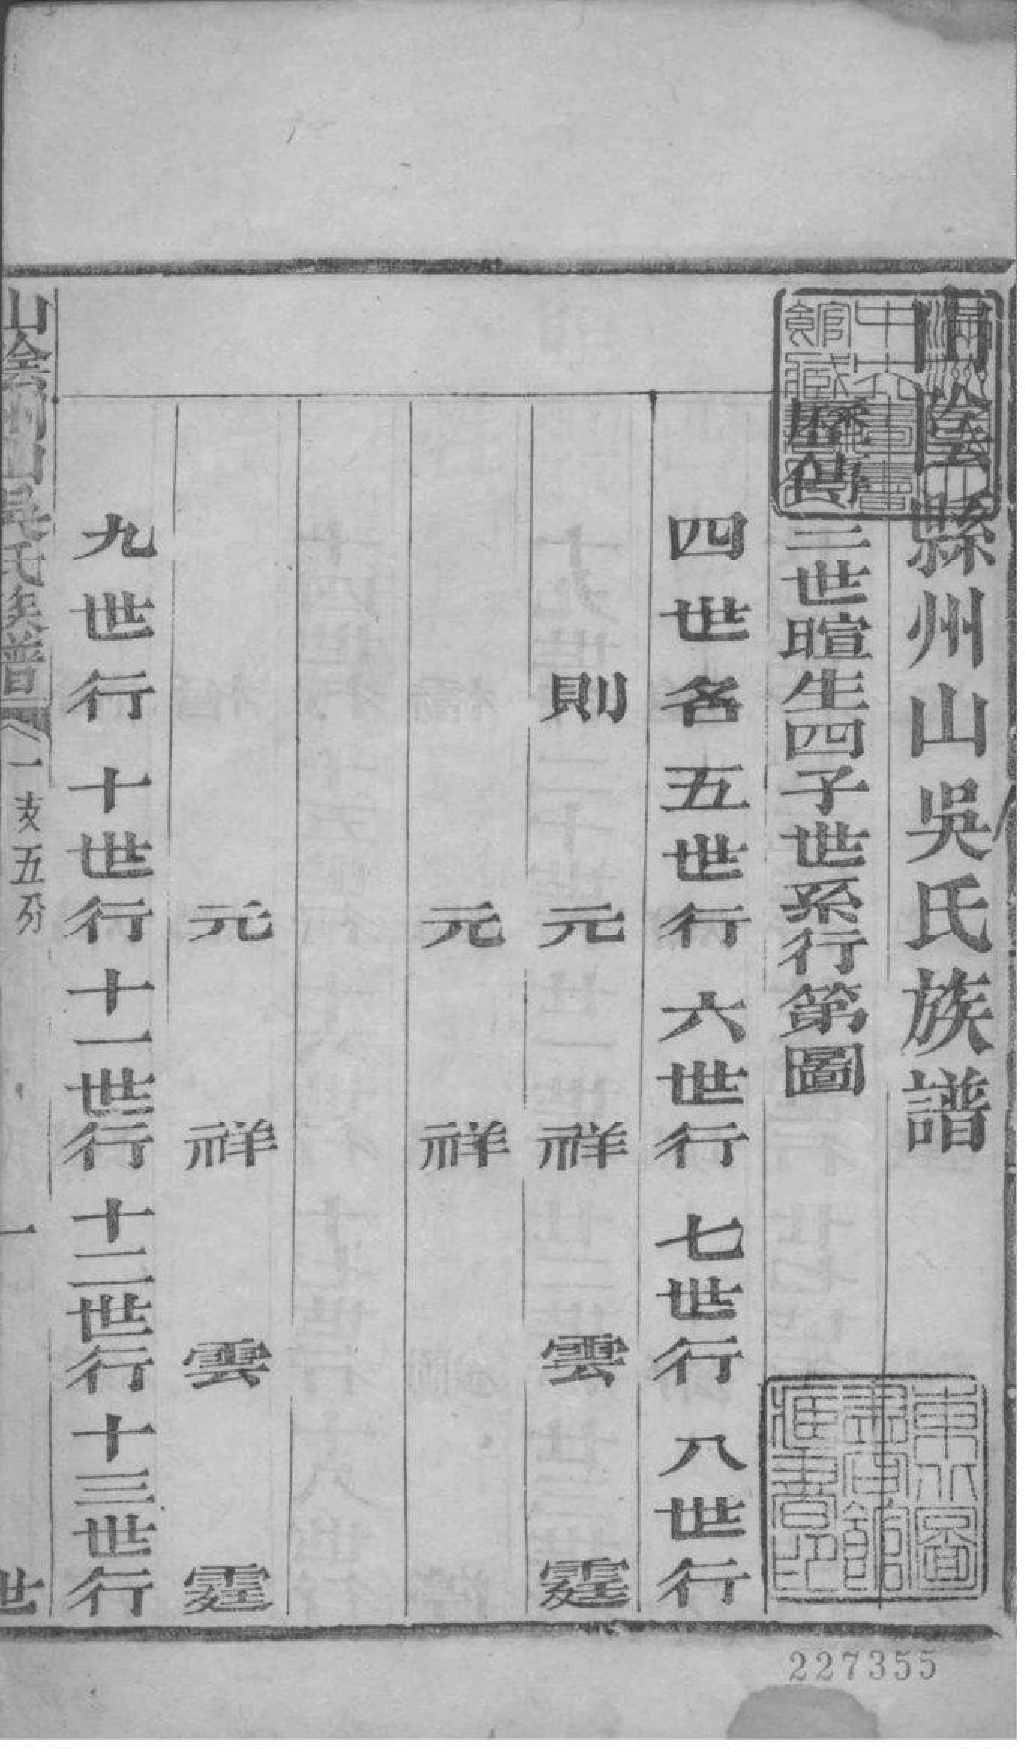 山陰縣州山吳氏族譜
歷傳三世暄生四子世系行第圖
四世名 五世行 六世行 七世行 八世行
則 元 祥 雲 霆
元 祥
元 祥 雲 霆
九世行 十世行 十一世行 十二世行 十三世行
山陰州山吳氏族譜 一支五分 一 世
東北圖書館所藏善本
227355